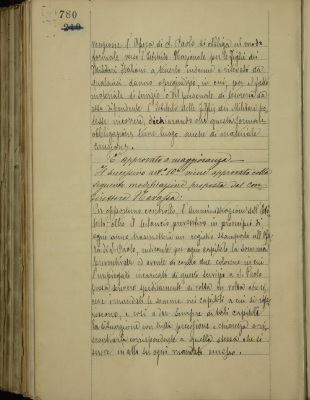 780
210
vengono l'Opera di S. Paolo si obbliga in modo
formale verso l'Istituto Nazionale per le Figlie dei
Militari Italiani a tenerlo indenne e rilevato da
qualsiasi danno o pregiudizio, in cui, per il fatto
materiale di terzi o del personale di servizio da
esso dipendente l'Istituto delle Figlie dei Militari po-
tesse incorrere, dichiarando che questa formale
obbligazione tiene luogo anche di materiale
cauzione.
È approvato a maggioranza.
Il successivo art. 10º viene approvato colla
seguente modificazione proposta dal con-
Direttore
Per opportuno controllo, l'amministrazione dell'Isti-
tuto oltre il bilancio preventivo in principio di
ogni anno trasmetterà un registro stampato all'Ope-
ra di S. Paolo, indicante per ogni capitolo la somma
preventivata ed avente di contro due colonne in cui
l'impiegato incaricato di questo servizio a S. Paolo
possa scrivere specificatamente a volta in volta che ri-
ceve mandati le somme nei capitoli a cui si rife-
riscono, e così aver sempre di tali capitoli
la situazione con tutta precisione e chiarezza a ri-
scontrarla corrispondente a quella stessa che si
scriva in alto di ogni mandato emesso.